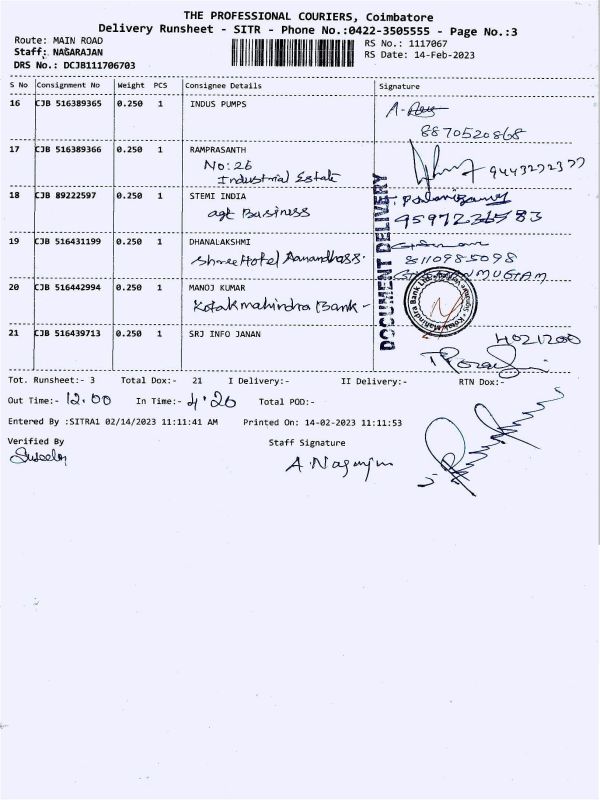 THE PROFESSIONAL COURIERS, Coimbatore
Delivery Runsheet - SITR - Phone No.:0422-3505555 - Page No.:3
Route: MAIN ROAD
Staff: NAGARAJAN
DRS No.: DCJB111706703
RS No.: 1117067
RS Date: 14-Feb-2023
S No Consignment No Weight PCS Consignee Details Signature
16 CJB 516389365 0.250 1 INDUS PUMPS
8870520868
17 CJB 516389366 0.250 1 RAMPRASANTH
No:26
Industrial Estate
18 CJB 89222597 0.250 1 STEMI INDIA
agt Business
19 CJB 516431199 0.250 1 DHANALAKSHMI
Shree Hotel Aanandhass.
8110985098
20 CJB 516442994 0.250 1 MANOJ KUMAR
Kotak mahindra Bank -
21 CJB 516439713 0.250 1 SRJ INFO JANAN
DOCUMENT DELIVERY
Tot. Runsheet:- 3 Total Dox:- 21 I Delivery:- II Delivery:- RTN Dox:-
Out Time:- 12.00 In Time:- 4.20 Total POD:-
Entered By :SITRA1 02/14/2023 11:11:41 AM Printed On: 14-02-2023 11:11:53
Verified By Staff Signature
A. Nagarajan